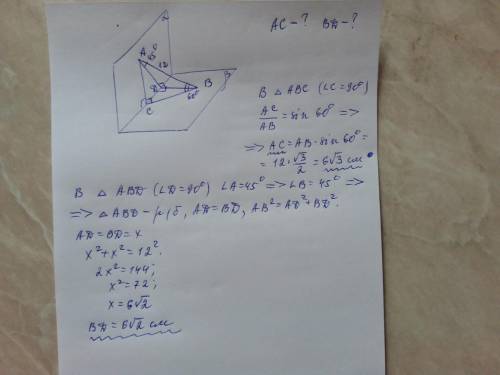 AC-? BD-?
α
A 45°
12
D
B β
60°
C
В △ ABC (∠C=90°)
AC/AB = sin 60° =>
=> AC = AB · sin 60° =
= 12 · √3/2 = 6√3 см.
В △ ABD (∠D=90°) ∠A=45° => ∠B=45° =>
=> △ ABD - р/б, AD=BD, AB²=AD²+BD².
AD=BD=x
x²+x²=12².
2x²=144;
x²=72;
x=6√2
BD=6√2 см